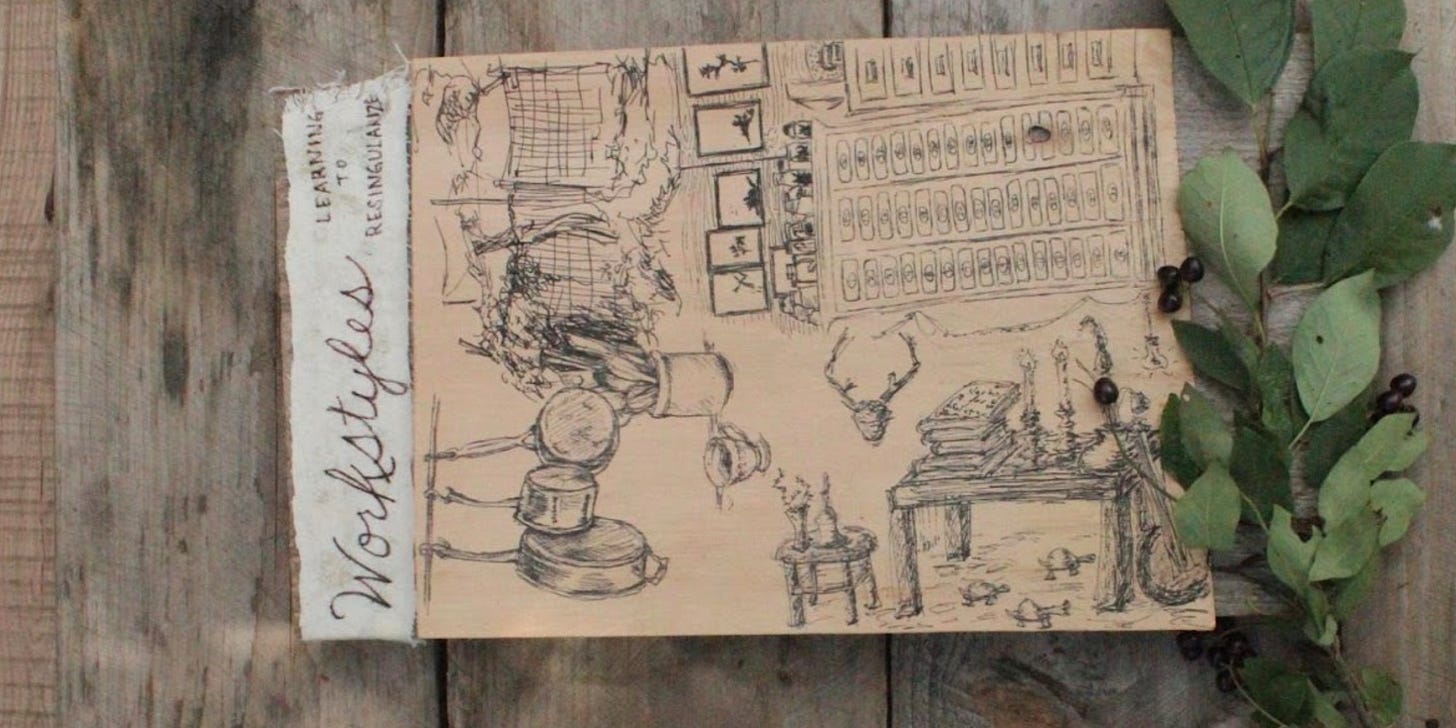 Workstyles
LEARNING
TO
RESINGULARIZE